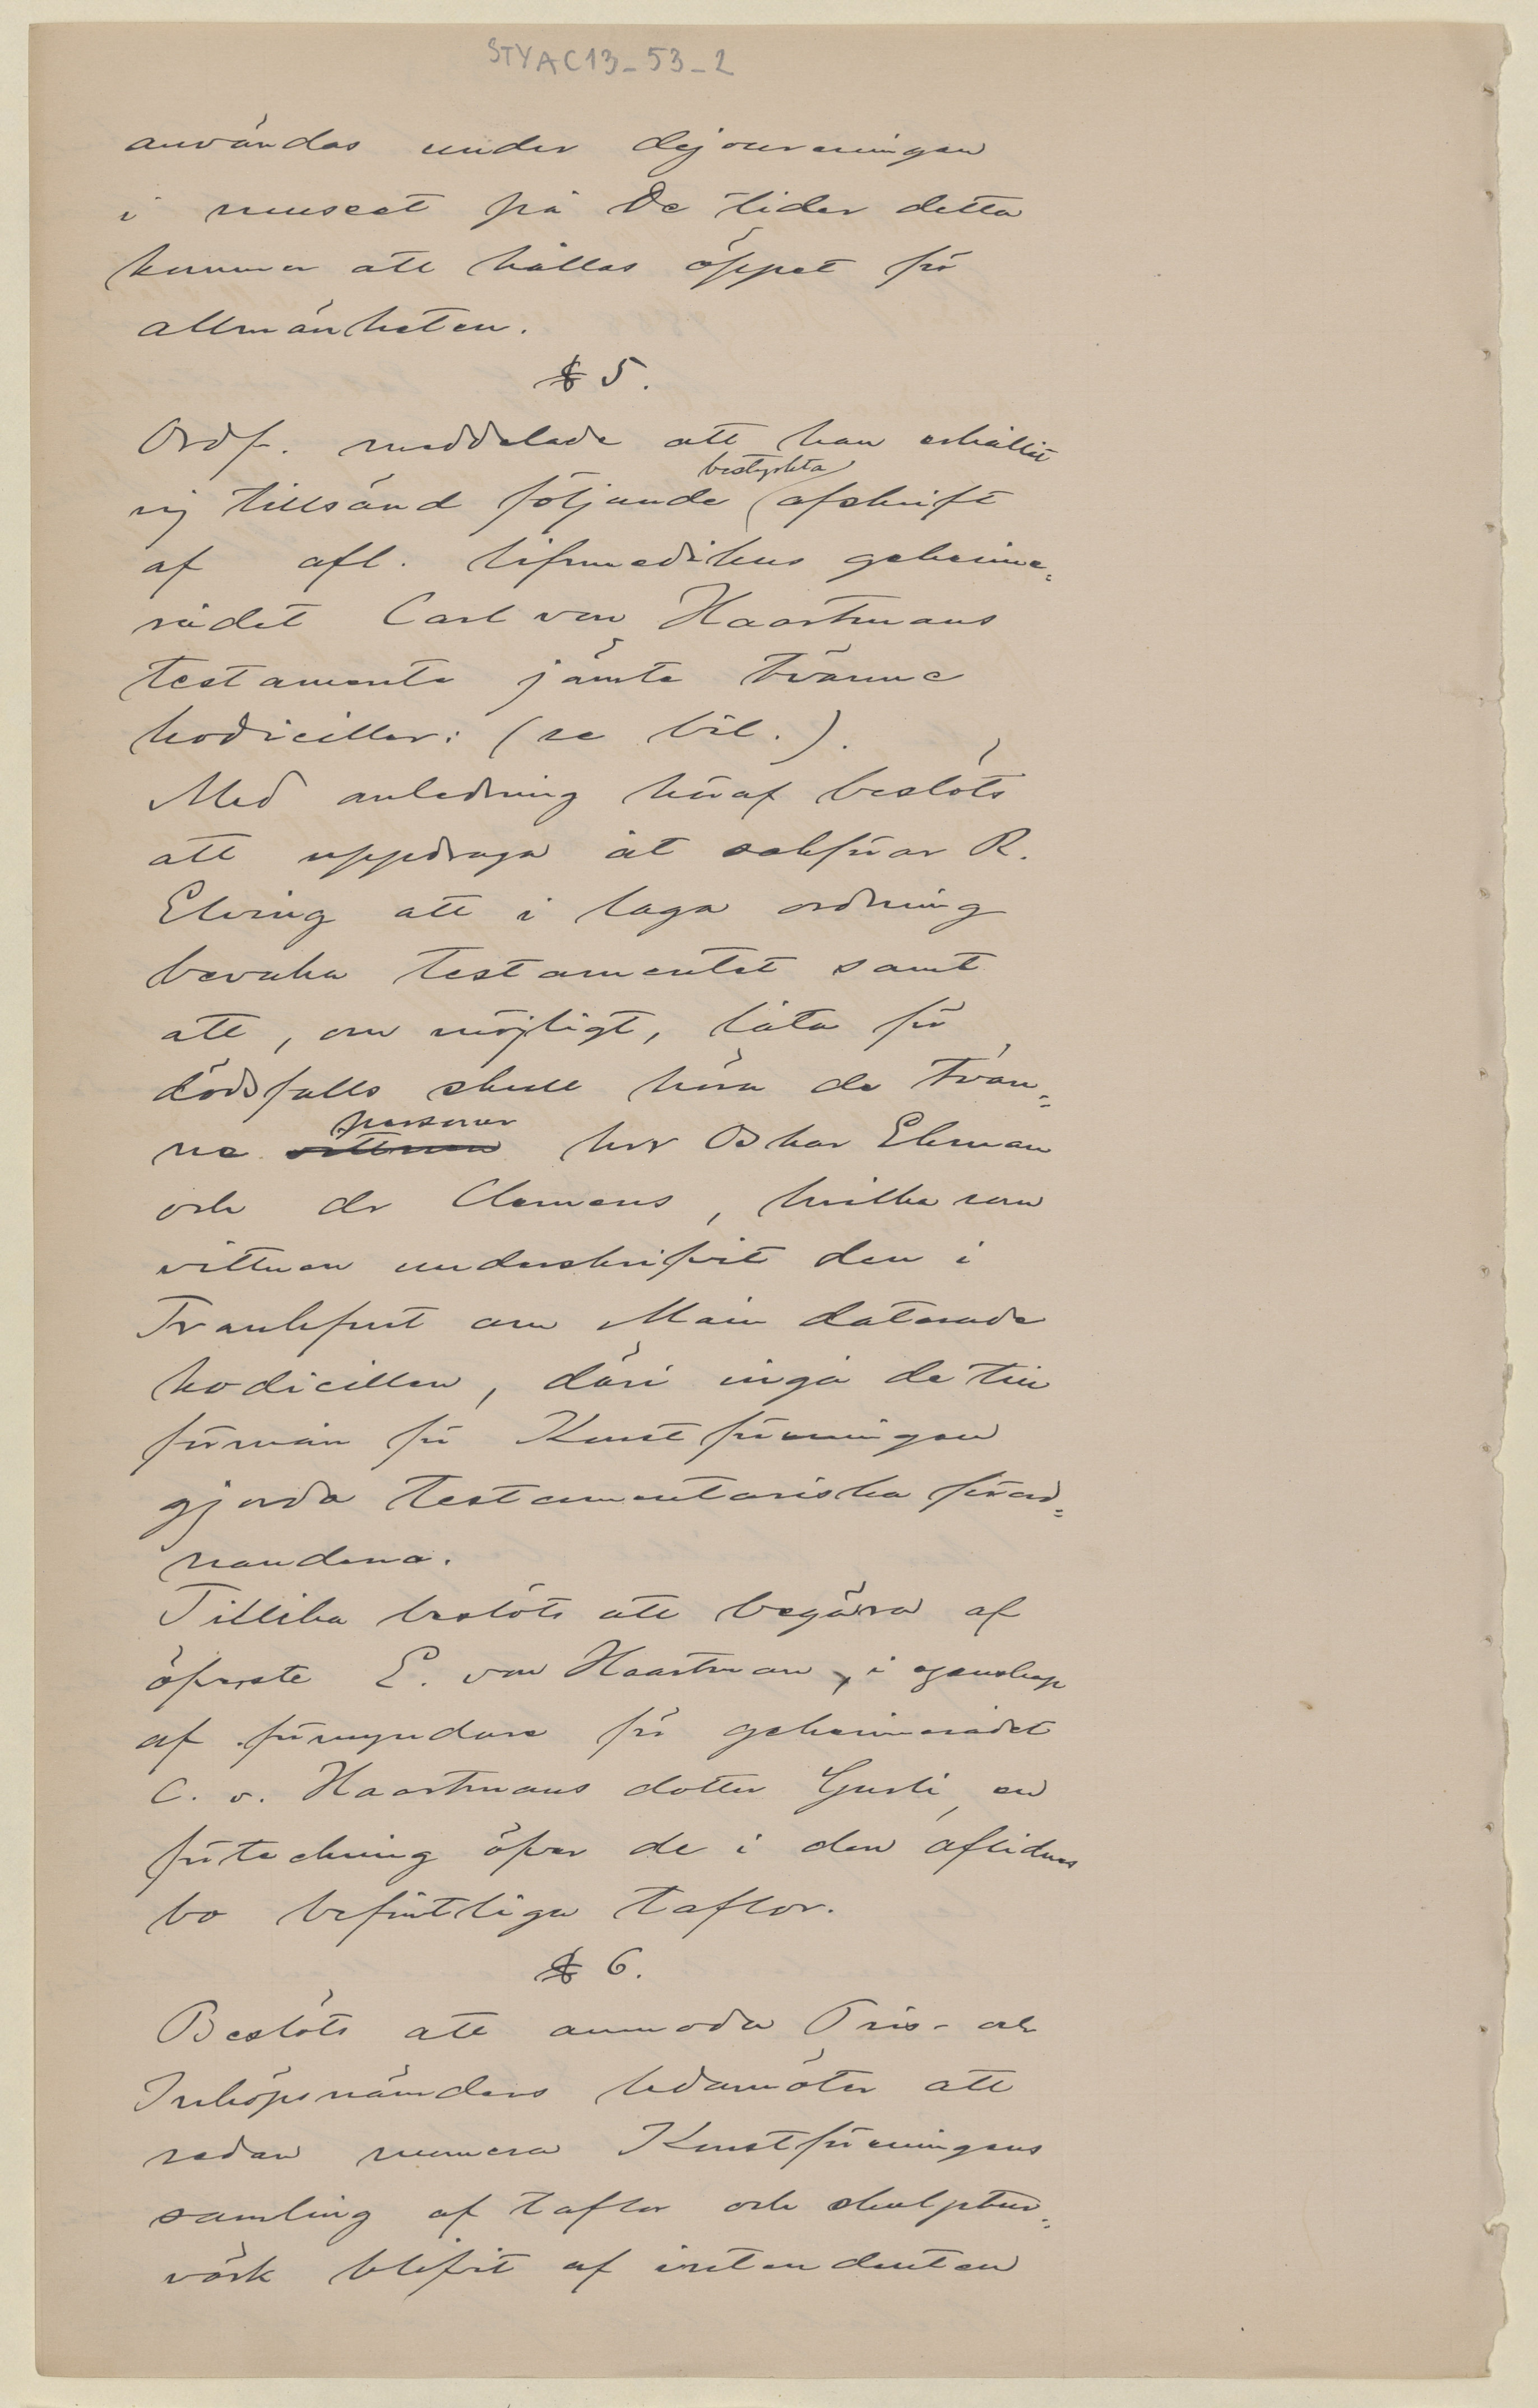 STYAC13_53_2
användas under dejoureringen
i museet på de tider detta
kommer att hållas öppet för
allmänheten.
§ 5.
Ordf. meddelade att han erhållit
bestyrkta
sig tillsänd följande afskrift
af afl. lifmedikus geheime=
rådet Carl von Haartmans
testamente jämte tvänne
kodiciller: (se bil.).
Med anledning häraf beslöts
att uppdraga åt sakförar R.
Elving att i laga ordning
bevaka testamentet samt
att, om möjligt, låta för
dödsfalls skull höra de tvän=
personer
ne vittnen hrr Oskar Ekman
och dr Clemens, hvilka som
vittnen underskrifvit den i
Frankfurt am Main daterade
kodicillen, däri ingå de till
förmån för Konstföreningen
gjorda testamentariska förord=
nandena.
Tillika beslöts att begära af
öfverste E. von Haartman, i egenskap
af förmyndare för geheimerådet
C. v. Haartmans dotter Gurli, en
förteckning öfver de i den aflidnes
bo befintliga taflor.
§ 6.
Beslöts att anmoda Pris- och
Inköpsnämndens ledamöter att
sedan numera Konstföreningens
samling af taflor och skulptur=
värk blifvit af intendenten